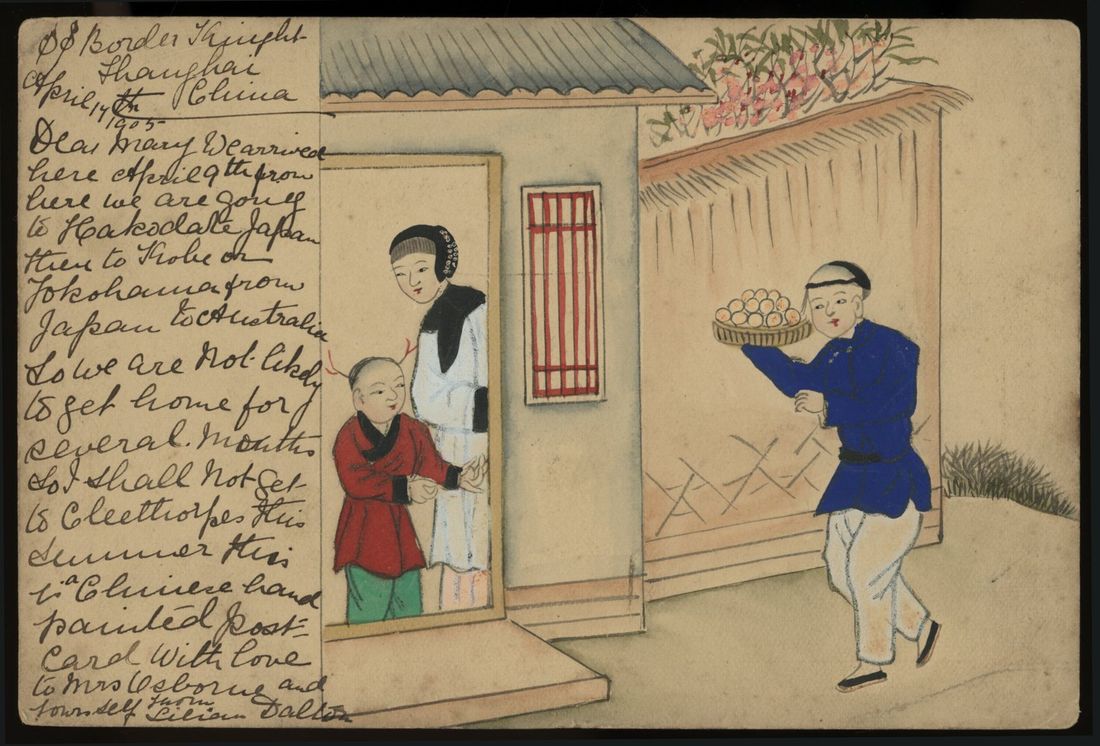 SS Border Knight
Shanghai
April 17th China
1905
Dear Mary We arrived
here April 9th from
here we are going
to Hakodate Japan
then to Kobe or
Yokohama from
Japan to Australia
So we are Not likely
to get home for
several Months
So I shall Not Get
to Cleethorpes this
Summer this
is a Chinese hand
painted Post-
Card With love
to Mrs Osborne and
yourself from
Lilian Dalton